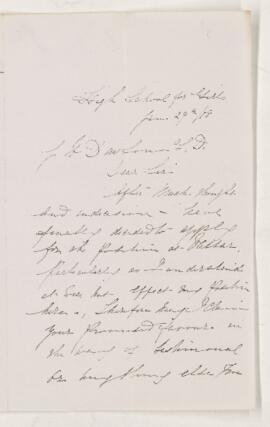 High School for Girls
June 29th /
J W Dawson L. D.
Dear Sir
After much thought
and indecision I have
finally decided to apply
for the position at
particularly as I understand
it will not effect my position
here. Therefore may I claim
your promised favour in
the way of testimonial
or anything else you